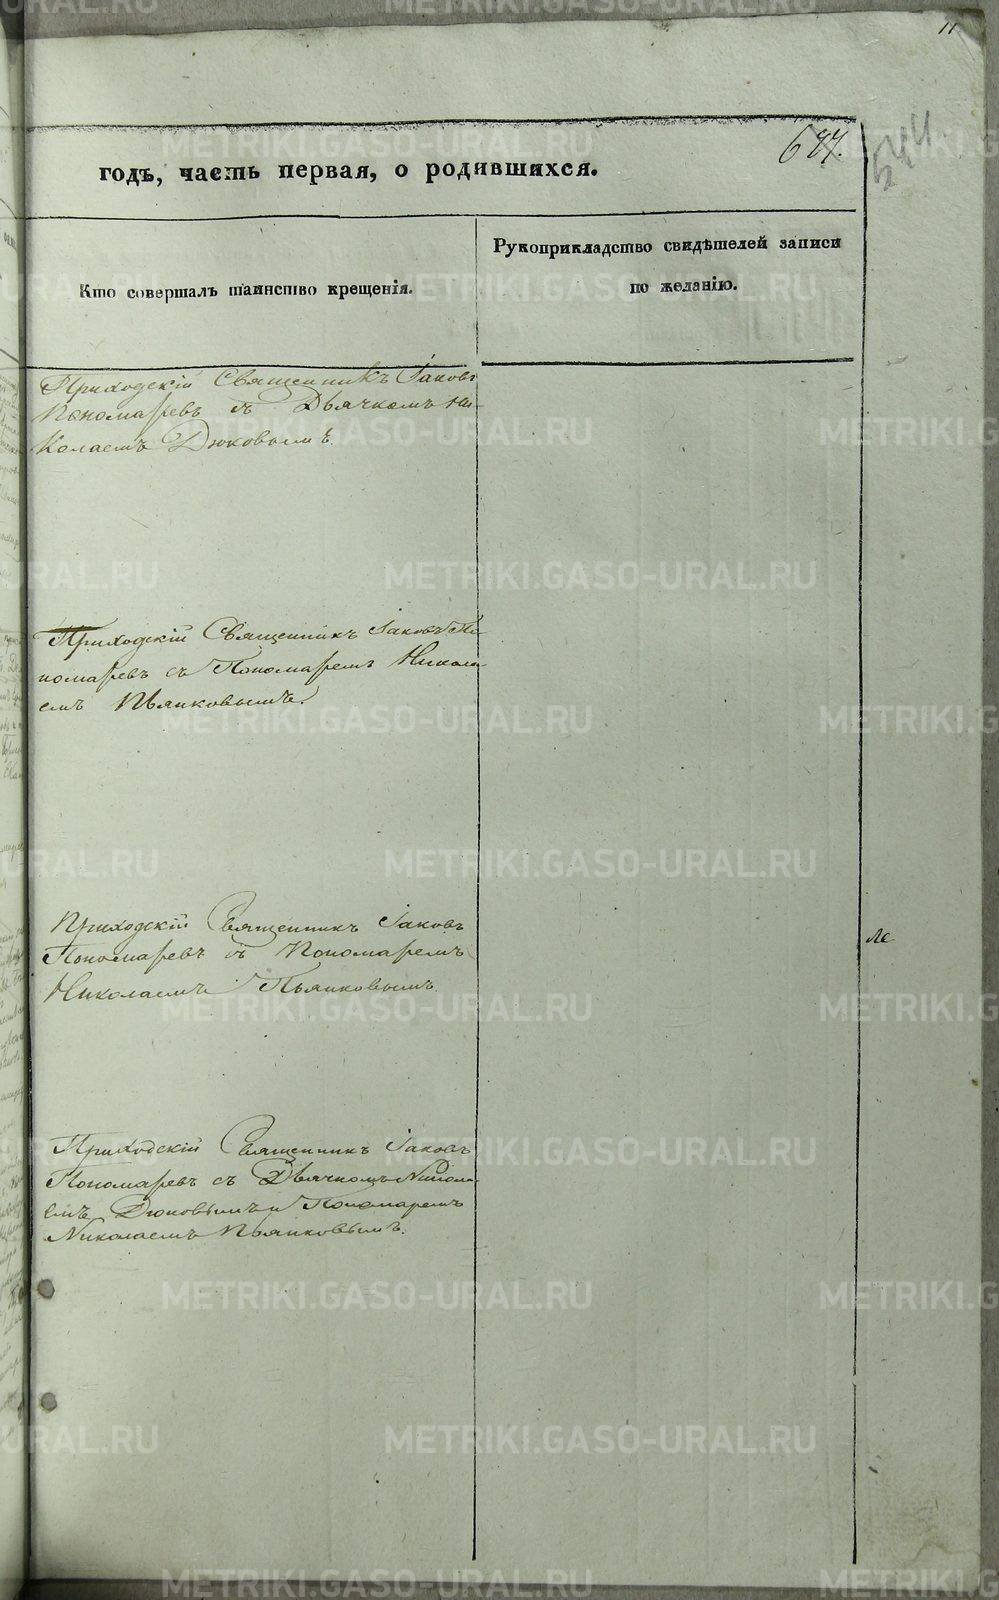 11
677.
544
годъ, часть первая, о родившихся.
Кто совершалъ таинство крещенія.
Рукоприкладство свидѣтелей записи
по желанію.
Приходскій Священникъ Іаковъ
Пономаревъ съ Дьячкомъ Ни-
колаемъ Дюковымъ.
Приходскій Священникъ Іаковъ По
номаревъ съ Пономаремъ Никола
емъ Пьянковымъ.
Приходскій Священникъ Іаковъ
Пономаревъ съ Пономаремъ
Николаемъ Пьянковымъ.
Приходскій Священникъ Іаковъ
Пономаревъ съ Дьячкомъ Никола
емъ Дюковымъ и Пономаремъ
Николаемъ Пьянковымъ.
METRIKI.GASO-URAL.RU